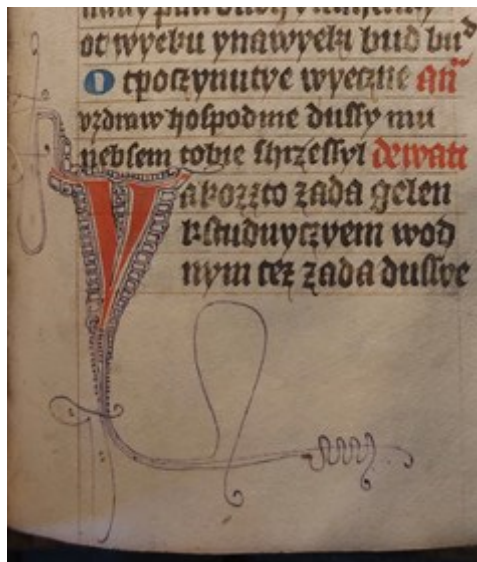 ot wyeku ynawyeki bud bud
Otpoczynutye wyeczne an̄
vzdraw hospodine dussy mu
nebsem tobie shrzessyl dewati
Vakozzto zada gelen
k studnyczyem wod
nym tez zada dussye